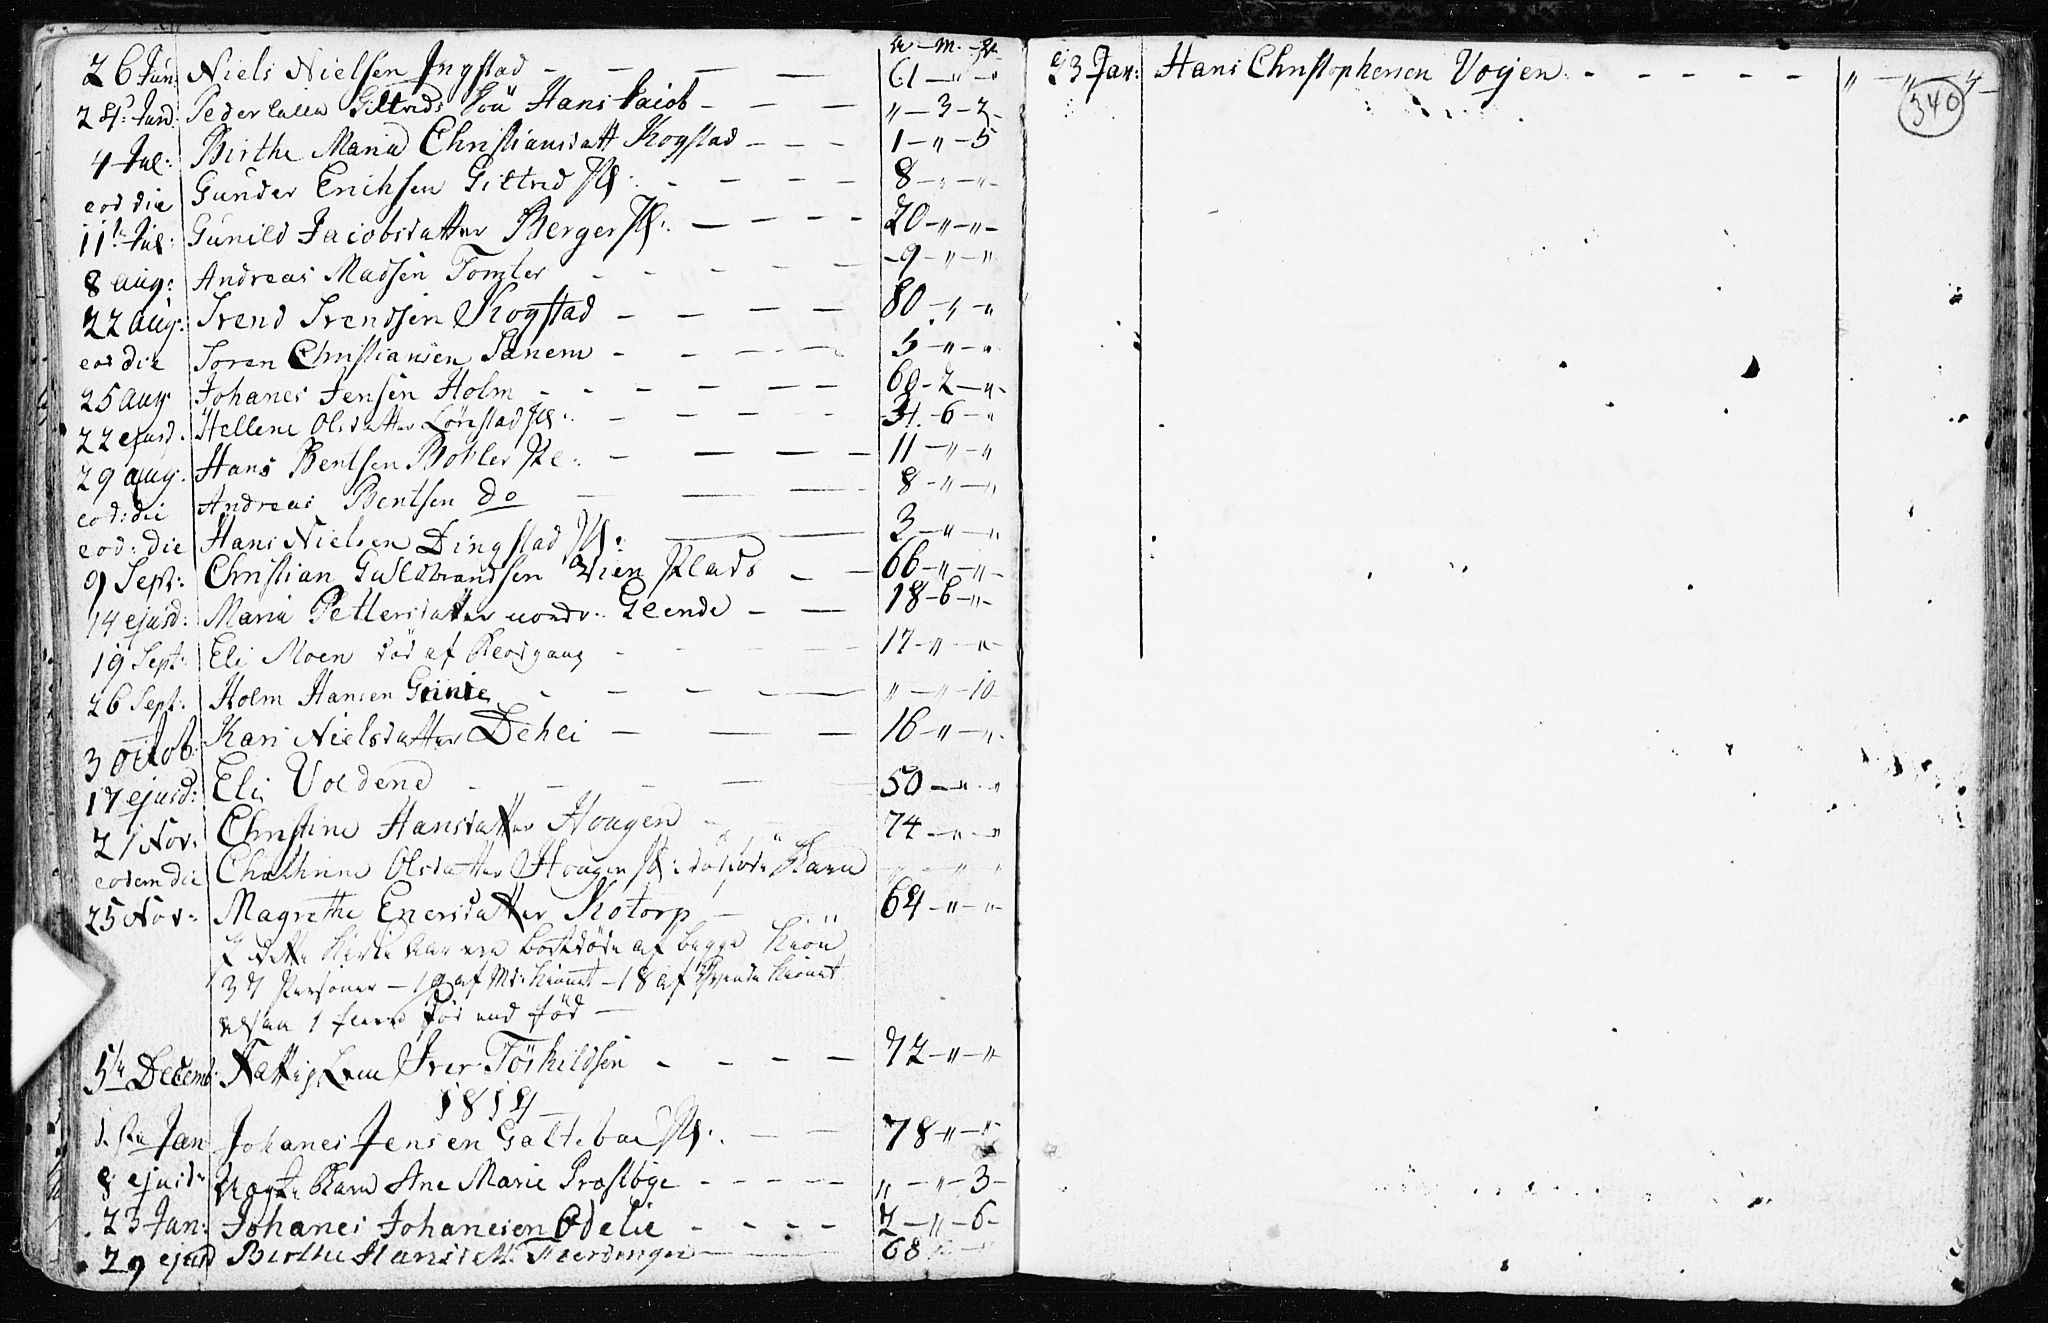 a – m. –
26 Jun: Niels Nielsen Ingstad – – – – 61 – " – "
Peder Giltveds Hans Jacob – – – " – 3 – 2 –
4 Jul: Birthe Maria Christiansdatt Kogstad – – – 1 – " – 5
eod die Gunder Erichsen Gilted Pl: – – – – 8 – " – " –
11te Jul: Gunild Jacobsdatter Berger Pl: – – – – 20 – " – " –
8 aug: Andreas Madsen Tomter – – – – – 9 – " – "
22 aug: Svend Svendsen Kogstad – – – – 80 – " – "
eod die Soren Christiansen Sanem – – – – 5 – " – "
25 aug Johanes Jensen Holm – – – – – 60 – 2 – " –
22 ejusd. Hellene Olsdatter Lörstad Pl: – – – – 34 – 6 – "
29 aug. Hans Bentsen Bohler Pl: – – – – 11 – " – "
eod: die Andreas Bentsen do – – – 8 – " – "
eod: die Hans Nielsen Dingstad Pl: – – 3 – " – "
9 Sept: Christian Guldbrandsen Vien Plads – – 66 – " – " –
14 ejusd: Maria Pettersdatter nordr. Geende – – 18 – 6 – " –
19 Sept: Eli Moen död af Blodgang – – – 17 – " – " –
26 Sept: Holm Hansen Grinie – – – – " – " – 10 –
3 Octob: Kari Nielsdatter Dehei – – – 16 – " – " –
17 ejusd: Eli Voldend – – – – – 50 – " – "
21 Nov: Christine Hansdatter Hougen – – 74 – " – "
eodem die Chathrine Olsdatter Hougen Pl: dödföde Barn – " – "
25 Nov: Magrethe Enersdatter Kotorp – – 64 – " – "
I dette Kirke Aar ere bortdöde af begge Kiön
37 Personer – 19 af Md: Kiönnet – 18 af Qvinde Kiönnet
altsaa 1 fleere död end föd –
5te Decemb: Fattig Lem Iver Törkildsen – – – – 72 – " – "
1814
Jan Johanes Jensen Galtebac Pl: – – 78 – " – "
8 ejusd: Barn Ane Marie Prastöge – – – – – " – " – 3 –
23 Jan: Johanes Johanesen Odelie – – – – 2 – " – 6 –
29 ejusd Birthe Hansdatt: – – 68 – " – "
23 Jan: Hans Christophersen Voyen – – – – – " – " – 4 –
340